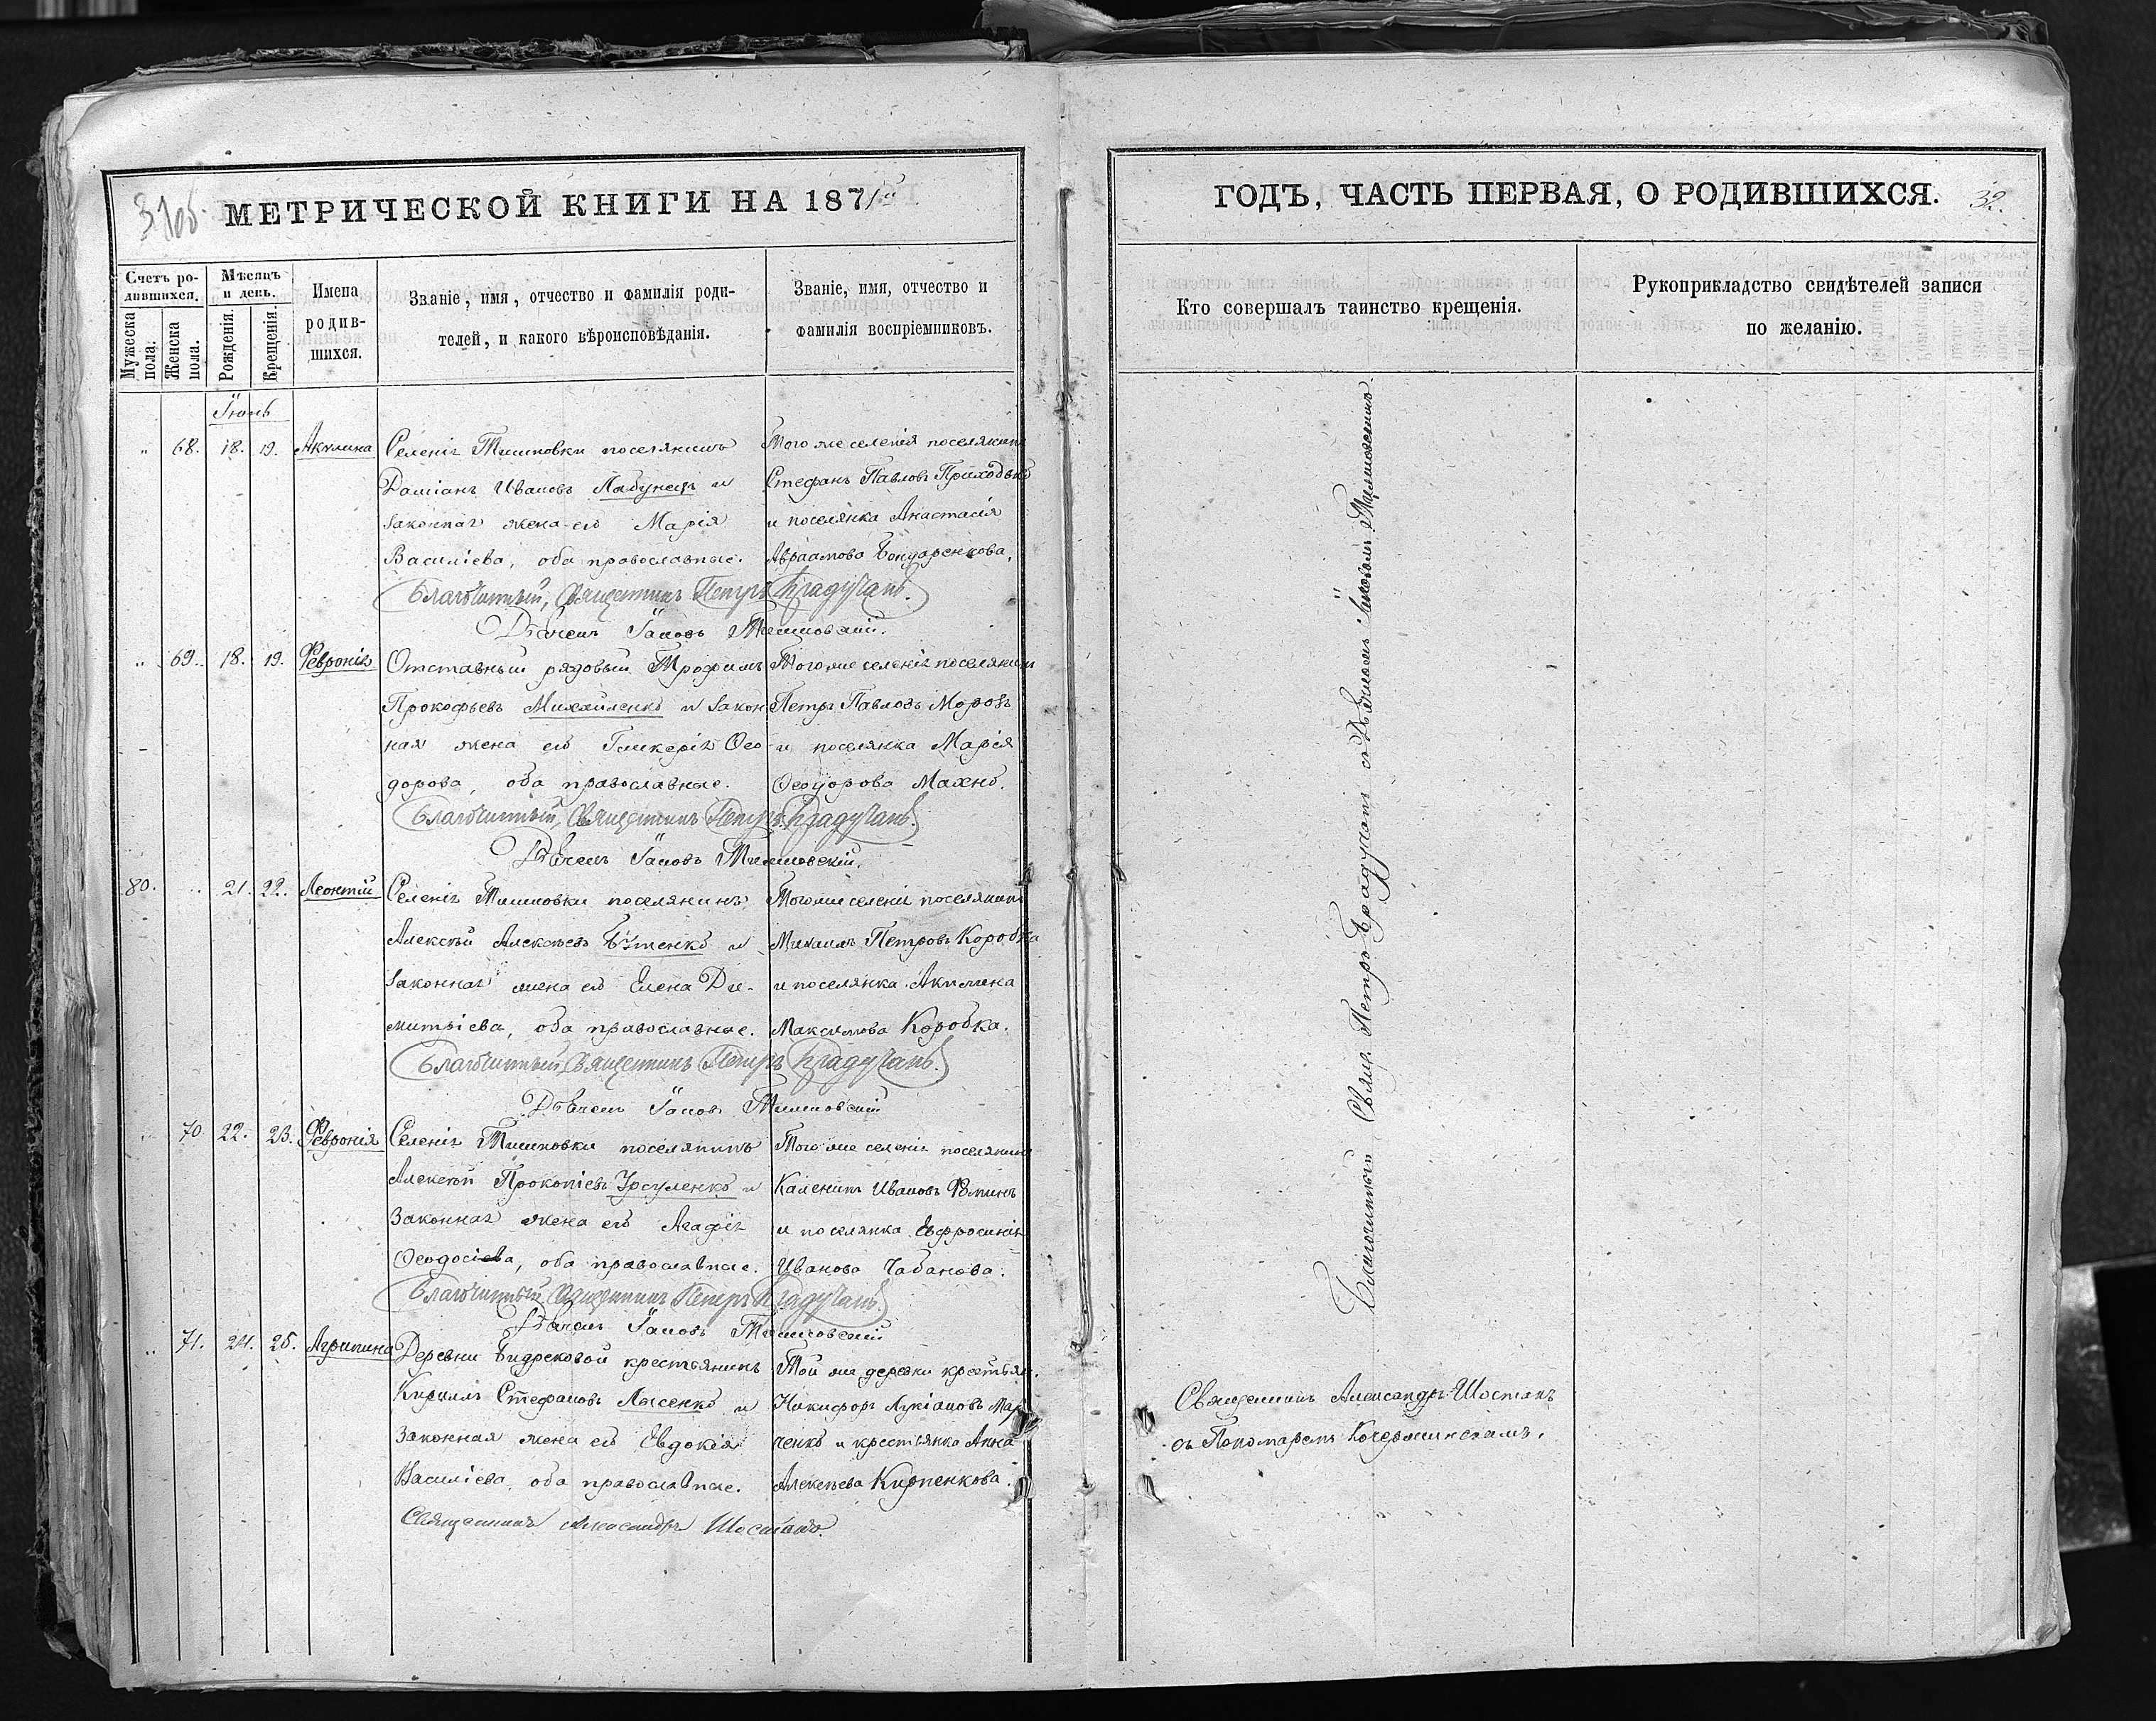 МЕТРИЧЕСКОЙ КНИГИ НА 1871й
Счетъ ро-
дившихся.
Мѣсяцъ
и день.
Мужеска
пола.
Женска
пола.
Рожденія.
Крещенія.
Имена
родив-
шихся.
Званіе, имя, отчество и фамилія роди-
телей, и какого вѣроисповѣданія.
Званіе, имя, отчество и
фамилія воспріемниковъ.
Іюнь
" 68. 18. 19. Акилина
Селенія Тишковки поселянинъ
Даміанъ Ивановъ и
законная жена его Марія
Василіева, оба православные.
Того же селенія поселянинъ
Стефанъ Павловъ Приходько
и поселянка Анастасія
Авраамова Бондаренкова.
Благочинный, Священникъ Петръ Крадучанъ.
Дьячекъ Іаковъ Тишковскій.
" 69. 18. 19. Февронія
Отставный рядовый Трофимъ
Прокофьевъ Михайленко и закон
ная жена его Гликерія Ѳео-
дорова, оба православные.
Того же селенія поселянинъ
Петръ Павловъ Морозъ
и поселянка Марія
Ѳеодорова Махно.
Благочинный, Священникъ Петръ Крадучанъ.
Дьячекъ Іаковъ Тишковскій.
80. " 21. 22. Леонтій
Селенія Тишковки поселянинъ
Алексѣй Алексѣевъ и
законная жена его Елена Ди-
митріева, оба православные.
Того же селенія поселянинъ
Михаилъ Петровъ Коробка
и поселянка Акилина
Максимова Коробка.
Благочинный Священникъ Петръ Крадучанъ.
Дьячекъ Іаковъ Тишковскій
" 70 22. 23. Февронія
Селенія Тишковки поселянинъ
Алексѣй Прокопіевъ Урсуленко и
законная жена его Агафія
Ѳеодосіева, оба православные.
Того же селенія поселянинъ
Каленикъ Ивановъ
и поселянка Евфросинія
Иванова Чабанова.
Благочинный Священникъ Петръ Крадучанъ.
Дьячекъ Іаковъ Тишковскій
" 71. 24. 25. Агрипина
Деревни крестьянинъ
Кириллъ Стефановъ Лысенко и
законная жена его Евдокія
Василіева, оба православные.
Той же деревни крестьян.
Никифоръ Лукіановъ Мар
ченко и крестьянка Анна
Алексѣева Кирпенкова.
Священникъ Александръ Шостакъ.
ГОДЪ, ЧАСТЬ ПЕРВАЯ, О РОДИВШИХСЯ.
32.
Кто совершалъ таинство крещенія.
Рукоприкладство свидѣтелей записи
по желанію.
Благочинный Свящ. Петръ Крадучанъ съ Дьячкомъ Іаковомъ Тишковскимъ.
Священникъ Александръ Шостакъ
съ Пономаремъ Кочержинскимъ.